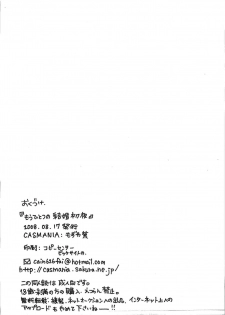 おくづけ。
『もうひとつの結婚初夜』
2008.08.17 発行
CASMANIA:もずや紫
印刷:コピーセンター
ビッグサイトの。
✉ cain626fai@hotmail.com
http://casmania.sakura.ne.jp/
この同人誌は成人向です。
18歳未満の方の購入、えつらん禁止。
無断転載・複製、ネットオークションへの出品、インターネット上への
アップロードもやめて下さいねー……!!